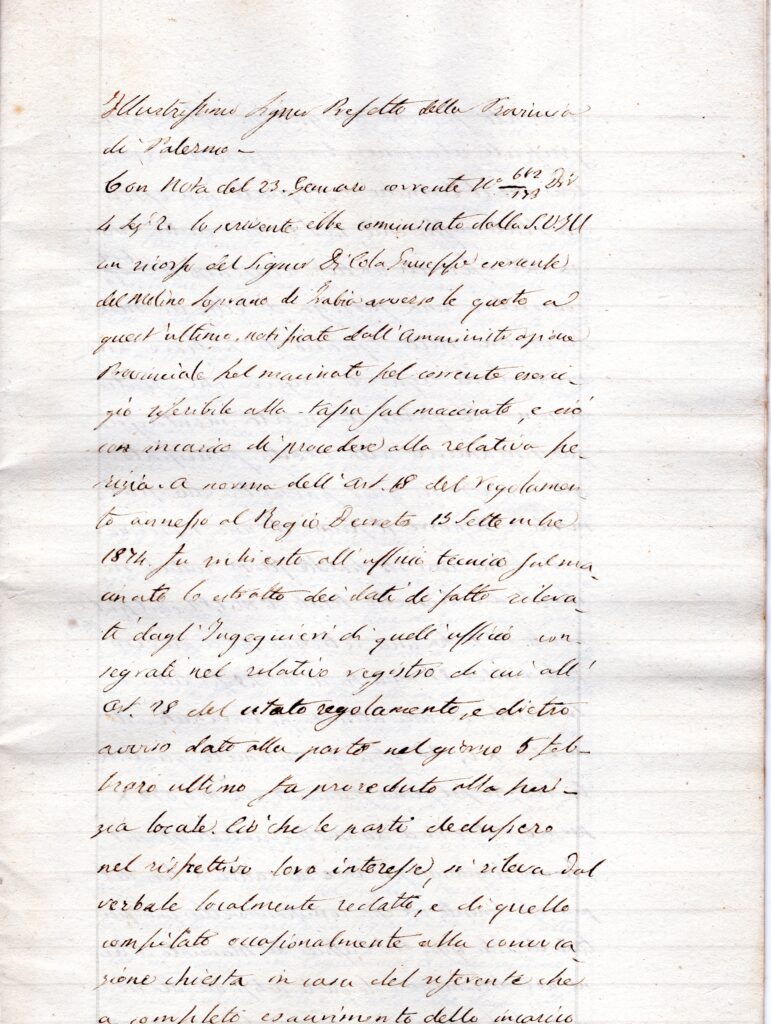 Illustrissimo Signor Prefetto della Provincia
di Palermo -
Con Nota del 23. Gennaro corrente N° 662/178 Div
4 Sez 2. lo scrivente ebbe comunicato dalla S.V. Ill
un ricorso del Signor Di Cola Giuseppe esercente
del Molino Soprano di Trabia avverso le quote a
quest'ultimo notificate dall'Amministrazione
Provinciale pel macinato pel corrente eserci-
zio riferibile alla tassa sul macinato, e ciò
con incarico di procedere alla relativa pe-
rizia. A norma dell'Art. 18 del regolamen-
to annesso al Regio Decreto 13 Settembre
1874. fu richiesto all'ufficio tecnico sul ma-
cinato lo estratto dei dati di fatto rileva-
ti dagl'Ingegnieri di quell'ufficio con-
segrati nel relativo registro di cui all'
Art. 28 del citato regolamento, e dietro
avviso dato alla parte nel giorno 5 feb-
braro ultimo fu proceduto alla peri-
zia locale. Ciò che le parti dedussero
nel rispettivo loro interesse, si rileva dal
verbale localmente redatto, e di quello
compilato occasionalmente alla convoca-
zione chiesta in casa del referente che
a completo esaurimento dello incarico